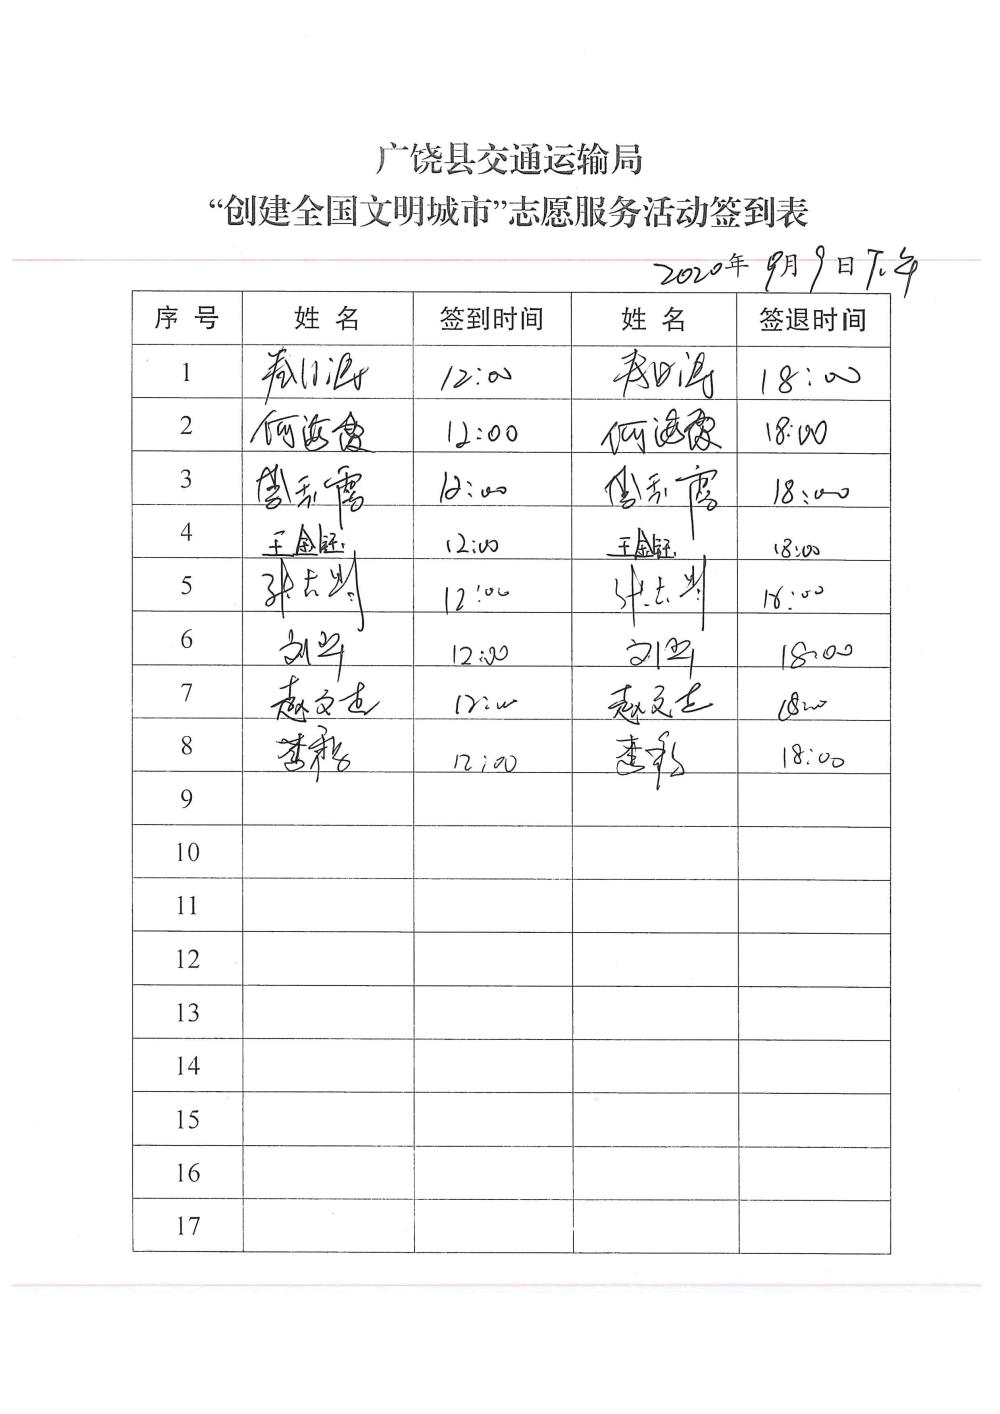 广饶县交通运输局
“创建全国文明城市”志愿服务活动签到表
2020年 9月9日下午
序 号 姓 名 签到时间 姓 名 签退时间
1 12:00 18:00
2 何海霞 12:00 何海霞 18:00
3 12:00 18:00
4 王金钰 12:00 王金钰 18:00
5 张志刚 12:00 张志刚 18:00
6 12:00 18:00
7 赵文志 12:00 赵文志 1800
8 李彩 12:00 李彩 18:00
9
10
11
12
13
14
15
16
17